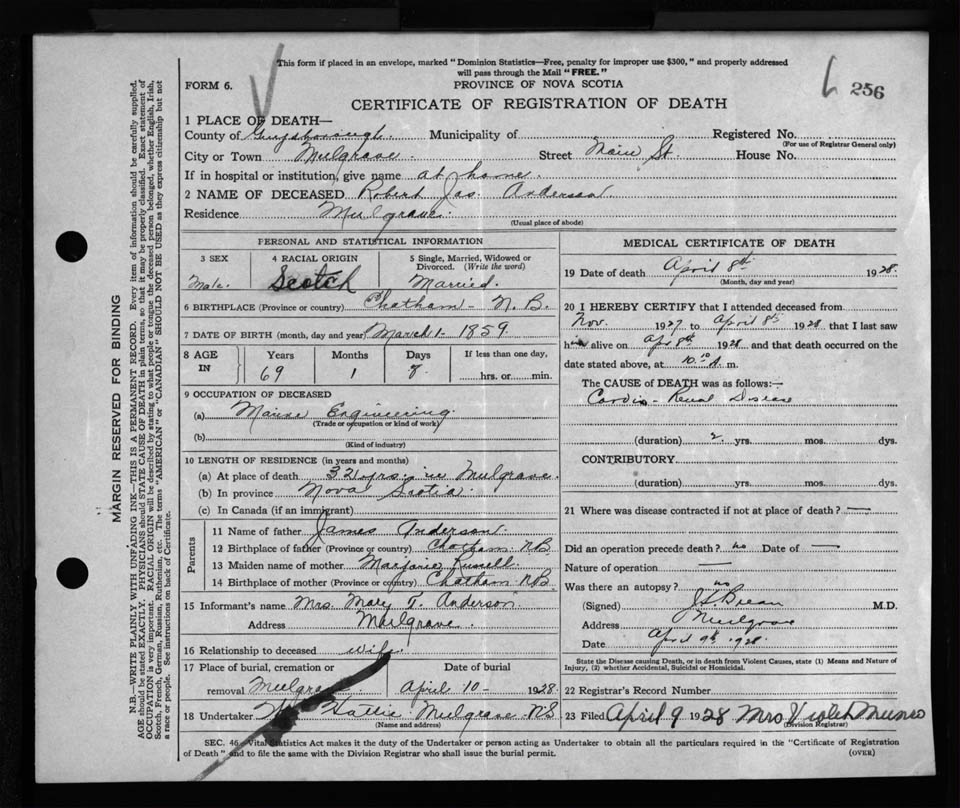 This form if placed in an envelope, marked "Dominion Statistics—Free, penalty for improper use $300," and properly addressed
will pass through the Mail "FREE."
FORM 6.
PROVINCE OF NOVA SCOTIA
256
CERTIFICATE OF REGISTRATION OF DEATH
1 PLACE OF DEATH—
County of Guysborough. Municipality of Registered No.
(For use of Registrar General only)
City or Town Mulgrave. Street Main St. House No.
If in hospital or institution, give name at home.
2 NAME OF DECEASED Robert Jas. Anderson
Residence Mulgrave.
(Usual place of abode)
PERSONAL AND STATISTICAL INFORMATION
3 SEX 4 RACIAL ORIGIN 5 Single, Married, Widowed or
Divorced. (Write the word)
Male. Scotch Married.
6 BIRTHPLACE (Province or country) Chatham - N. B.
7 DATE OF BIRTH (month, day and year) March 1 - 1859.
8 AGE IN Years Months Days If less than one day,
69 1 hrs. or min.
9 OCCUPATION OF DECEASED
(a) Engineering.
(Trade or occupation or kind of work)
(b)
(Kind of industry)
10 LENGTH OF RESIDENCE (in years and months)
(a) At place of death 32 yrs. in Mulgrave.
(b) In province Nova Scotia.
(c) In Canada (if an immigrant)
Parents
11 Name of father James Anderson.
12 Birthplace of father (Province or country) Chatham. N.B.
13 Maiden name of mother Marjorie Russell.
14 Birthplace of mother (Province or country) Chatham N.B.
15 Informant's name Mrs. Mary T. Anderson.
Address Mulgrave.
16 Relationship to deceased wife.
17 Place of burial, cremation or Date of burial
removal Mulgrave April 10 - 1928.
18 Undertaker Hattie Mulgrave N.S
(Name and address)
MEDICAL CERTIFICATE OF DEATH
19 Date of death April 8th 1928.
(Month, day and year)
20 I HEREBY CERTIFY that I attended deceased from
Nov. 1927 to April 8th 1928 that I last saw
him alive on Ap 8th 1928 and that death occurred on the
date stated above, at 10.10 A. m.
The CAUSE OF DEATH was as follows:—
Cardio - Renal Disease
(duration) 2 yrs. mos. dys.
CONTRIBUTORY.
(duration) yrs. mos. dys.
21 Where was disease contracted if not at place of death? —
Did an operation precede death? no Date of —
Nature of operation —
Was there an autopsy? no
(Signed) M.D.
Address Mulgrave
Date April 9th 1928.
State the Disease causing Death, or in death from Violent Causes, state (1) Means and Nature of
Injury, (2) whether Accidental, Suicidal or Homicidal.
22 Registrar's Record Number
23 Filed April 9 1928 Mrs Violet Munro
(Division Registrar)
SEC. 46—Vital Statistics Act makes it the duty of the Undertaker or person acting as Undertaker to obtain all the particulars required in the "Certificate of Registration
of Death" and to file the same with the Division Registrar who shall issue the burial permit. (OVER)
MARGIN RESERVED FOR BINDING
N.B.—WRITE PLAINLY WITH UNFADING INK—THIS IS A PERMANENT RECORD. Every item of information should be carefully supplied.
AGE should be stated EXACTLY. PHYSICIANS should STATE CAUSE OF DEATH in plain terms, so that it may be properly classified. Exact statement of
OCCUPATION is very important. RACIAL ORIGIN will be described by stating to what people or tongue the deceased person belonged, whether English, Irish,
Scotch, French, German, Russian, Ruthenian, etc. The terms "AMERICAN" or "CANADIAN" SHOULD NOT BE USED as they express citizenship but not
a race or people. See instructions on back of Certificate.